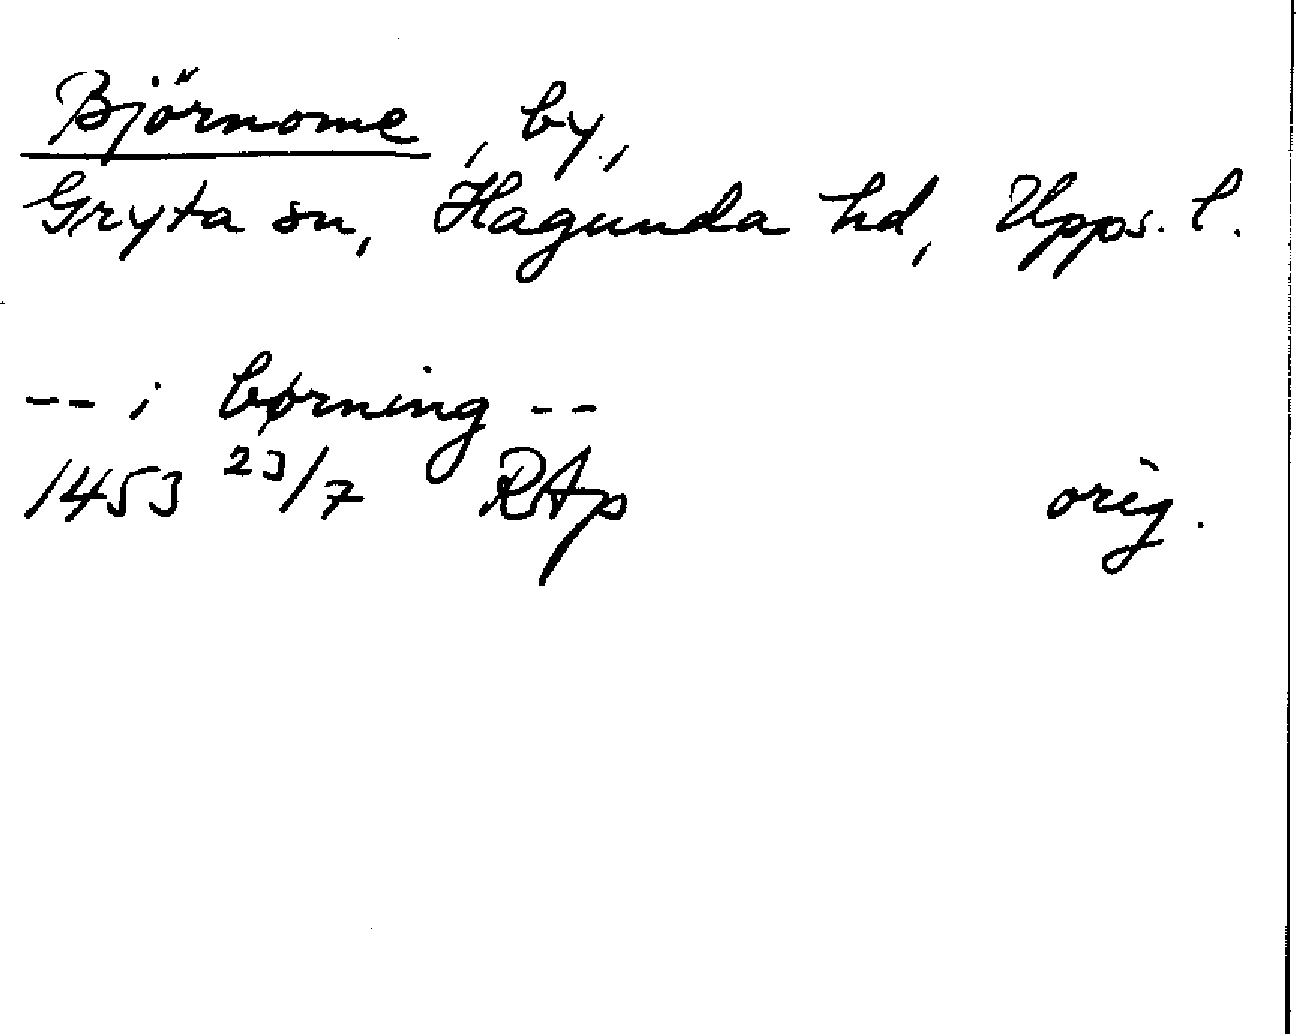 Björnome, by.,
Gryta sn, Hagunda hd, Upps. l.
-- i børning --
1453 23/7 RAp orig.